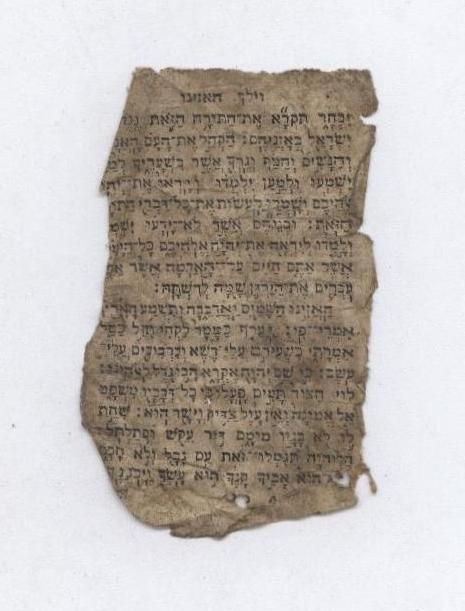 וילך האזינו
יִבְחָר תִּקְרָא אֶת־הַתּוֹרָה הַזֹּאת נֶגֶד
יִשְׂרָאֵל בְּאָזְנֵיהֶם: הַקְהֵל אֶת־הָעָם הָאֲנָ
וְהַנָּשִׁים וְהַטַּף וְגֵרְךָ אֲשֶׁר בִּשְׁעָרֶיךָ לְמַ
יִשְׁמְעוּ וּלְמַעַן יִלְמְדוּ וְיָרְאוּ אֶת־יְהֹ
אֱלֹהֵיכֶם וְשָׁמְרוּ לַעֲשׂוֹת אֶת־כָּל־דִּבְרֵי הַתּוֹ
הַזֹּאת: וּבְנֵיהֶם אֲשֶׁר לֹא־יָדְעוּ יִשְׁמְ
וְלָמְדוּ לְיִרְאָה אֶת־יְהֹוָה אֱלֹהֵיכֶם כָּל־הַיָּ
אֲשֶׁר אַתֶּם חַיִּים עַל־הָאֲדָמָה אֲשֶׁר אַ
עֹבְרִים אֶת־הַיַּרְדֵּן שָׁמָּה לְרִשְׁתָּהּ:
הַאֲזִינוּ הַשָּׁמַיִם וַאֲדַבֵּרָה וְתִשְׁמַע הָאָרֶ
אִמְרֵי־פִי: יַעֲרֹף כַּמָּטָר לִקְחִי תִּזַּל כַּטַּל
אִמְרָתִי כִּשְׂעִירִם עֲלֵי־דֶשֶׁא וְכִרְבִיבִים עֲלֵי־
עֵשֶׂב: כִּי שֵׁם יְהֹוָה אֶקְרָא הָבוּ גֹדֶל לֵאלֹהֵינוּ:
לוי הַצּוּר תָּמִים פָּעֳלוֹ כִּי כָל־דְּרָכָיו מִשְׁפָּט
אֵל אֱמוּנָה וְאֵין עָוֶל צַדִּיק וְיָשָׁר הוּא: שִׁחֵת
לוֹ לֹא בָּנָיו מוּמָם דּוֹר עִקֵּשׁ וּפְתַלְתֹּל:
הַלְיְהֹוָה תִּגְמְלוּ־זֹאת עַם נָבָל וְלֹא חָכָם
הוּא אָבִיךָ קָּנֶךָ הוּא עָשְׂךָ וַיְכֹנְנֶךָ